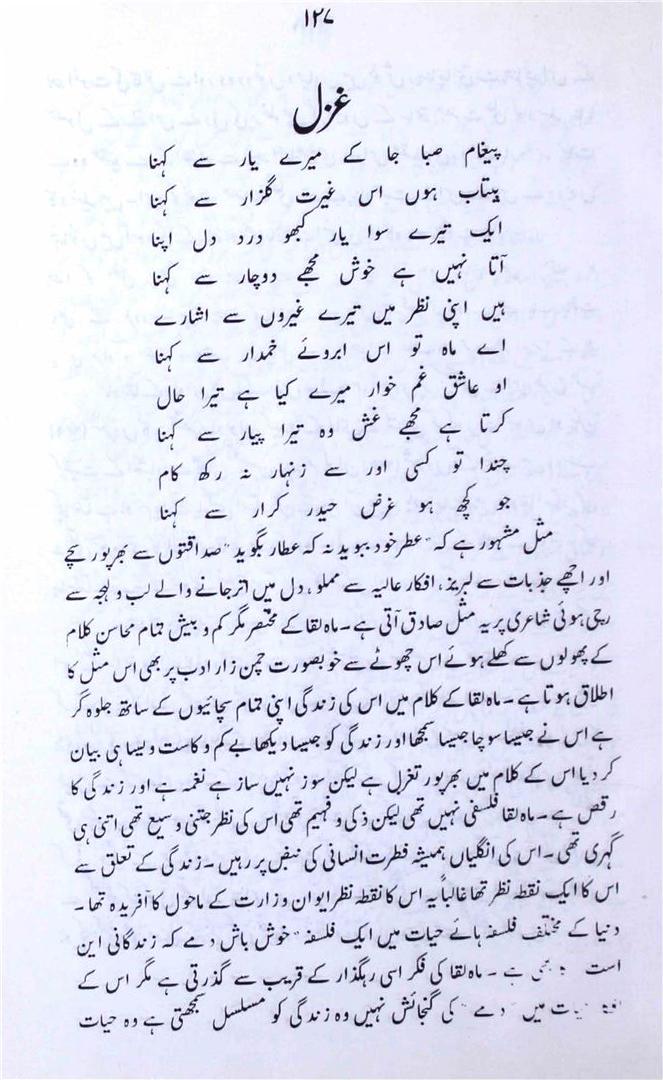 ۱۲۷
غزل
پیغام صبا جا کے میرے یار سے کہنا
بیتاب ہوں اس غیرت گلزار سے کہنا
ایک تیرے سوا یار کبھو درد دل اپنا
آتا نہیں ہے خوش مجھے دوچار سے کہنا
ہیں اپنی نظر میں تیرے غیروں سے اشارے
اے ماہ تو اس ابروئے خمدار سے کہنا
او عاشق غم خوار میرے کیا ہے تیرا حال
کرتا ہے مجھے غش وہ تیرا پیار سے کہنا
چندا تو کسی اور سے زنہار نہ رکھ کام
جو کچھ ہو غرض حیدر کرار سے کہنا
مثل مشہور ہے کہ "عطر خود ببوید نہ کہ عطار بگوید" صداقتوں سے بھرپور سچے
اور اچھے جذبات سے لبریز، افکار عالیہ سے مملو، دل میں اتر جانے والے لب و لہجہ سے
رچی ہوئی شاعری پر یہ مثل صادق آتی ہے۔ ماہ لقا کے مختصر مگر کم و بیش تمام محاسن کلام
کے پھولوں سے کھلے ہوئے اس چھوٹے سے خوبصورت چمن زار ادب پر بھی اس مثل کا
اطلاق ہوتا ہے۔ ماہ لقا کے کلام میں اس کی زندگی اپنی تمام سچائیوں کے ساتھ جلوہ گر
ہے اس نے جیسا سوچا جیسا سمجھا اور زندگی کو جیسا دیکھا بے کم و کاست ویسا ہی بیان
کر دیا اس کے کلام میں بھرپور تغزل ہے لیکن سوز نہیں ساز ہے نغمہ ہے اور زندگی کا
رقص ہے۔ ماہ لقا فلسفی نہیں تھی لیکن ذکی و فہیم تھی اس کی نظر جتنی وسیع تھی اتنی ہی
گہری تھی۔ اس کی انگلیاں ہمیشہ فطرت انسانی کی نبض پر رہیں۔ زندگی کے تعلق سے
اس کا ایک نقطہ نظر تھا غالباً یہ اس کا نقطہ نظر ایوان وزارت کے ماحول کا آفریدہ تھا۔
دنیا کے مختلف فلسفہ ہائے حیات میں ایک فلسفہ "خوش باش دمے کہ زندگانی این
است" بھی ہے۔ ماہ لقا کی فکر اسی رہگذار کے قریب سے گذرتی ہے مگر اس کے
حیات میں "دمے" کی گنجائش نہیں وہ زندگی کو مسلسل سمجھتی ہے وہ حیات